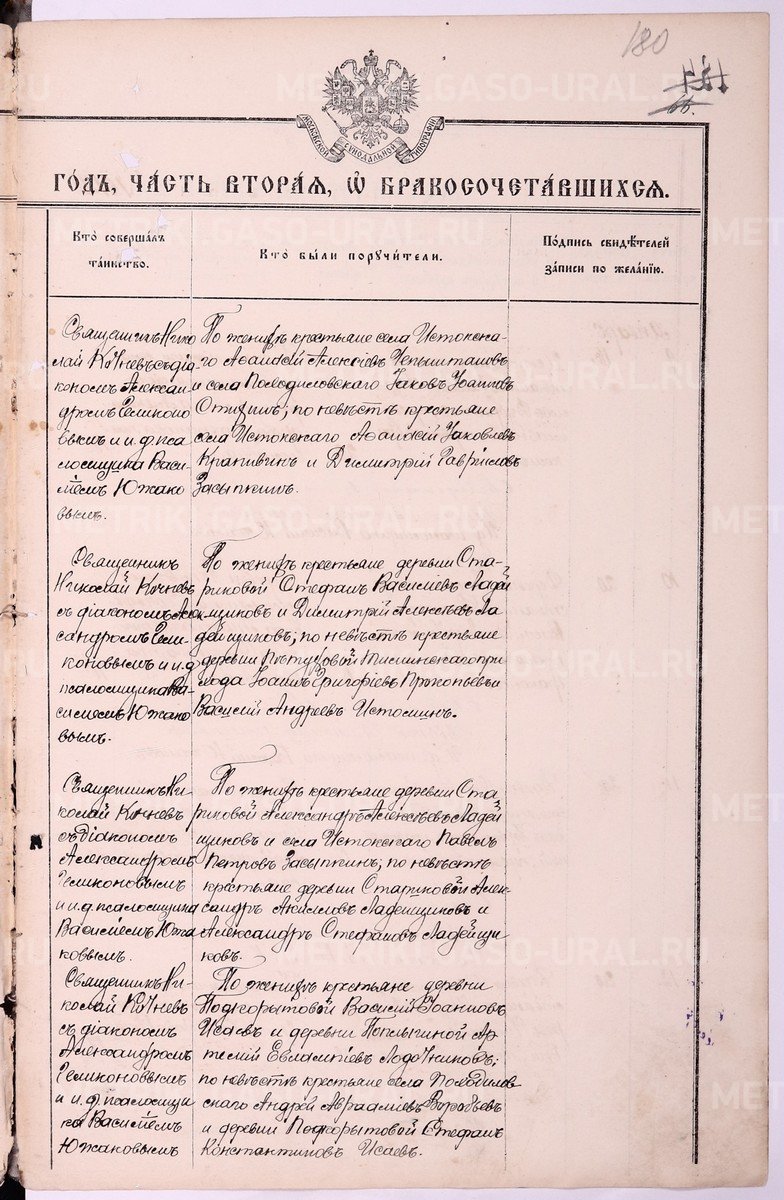 180
66.
МОСКОВСКОЙ СѴНОДАЛЬНОЙ ТИПОГРАФІИ
ГОДЪ, ЧАСТЬ ВТОРАЯ, Ѿ БРАКОСОЧЕТАВШИХСЯ.
Кто совершалъ таинство.
Кто были поручители.
Подпись свидѣтелей записи по желанію.
Священникъ Нико
лай Кочневъ съ діа
кономъ Алексан
дромъ Геликоно
вымъ и и.ф. пса
ломщика Васи
ліемъ Южако
вымъ.
По женихѣ крестьяне села Истокска
го Аѳанасій Алексѣевъ
и села Яковъ Іоанновъ
по невѣстѣ крестьяне
села Истокскаго Аѳанасій Яковлевъ
Крапивинъ и Димитрій Гавріиловъ
Засыпкинъ.
Священникъ
Николай Кочневъ
съ діакономъ Алек
сандромъ Гели
коновымъ и и.ф
псаломщика Ва
силіемъ Южако
вымъ.
По женихѣ крестьяне деревни Ста
риковой Стефанъ Василіевъ Ладей
щиковъ и Димитрій Алексѣевъ Ла
дейщиковъ; по невѣстѣ крестьяне
деревни при
хода Іоаннъ Григоріевъ Прокопьевъ и
Василій Андреевъ Истоминъ.
Священникъ Ни
колай Кочневъ
съ діакономъ
Александромъ
Геликоновымъ
и и.ф. псаломщика
Василіемъ Южа
ковымъ.
По женихѣ крестьяне деревни Ста
риковой Александръ Алексѣевъ Ладей
щиковъ и села Истокскаго Павелъ
Петровъ Засыпкинъ; по невѣстѣ
крестьяне деревни Стариковой Алек
сандръ Ладейщиковъ и
Александръ Стефановъ Ладейщи
ковъ.
Священникъ Ни
колай Кочневъ
съ діакономъ
Александромъ
Геликоновымъ
и и.ф. псаломщи
ка Василіемъ
Южаковымъ
По женихѣ крестьяне деревни
Подкорытовой Василій Іоанновъ
Исаевъ и деревни Ар
темій Евлампіевъ Лодочниковъ;
по невѣстѣ крестьяне села
скаго Андрей Аврааміевъ Воробьевъ
и деревни Подкорытовой Стефанъ
Константиновъ Исаевъ.